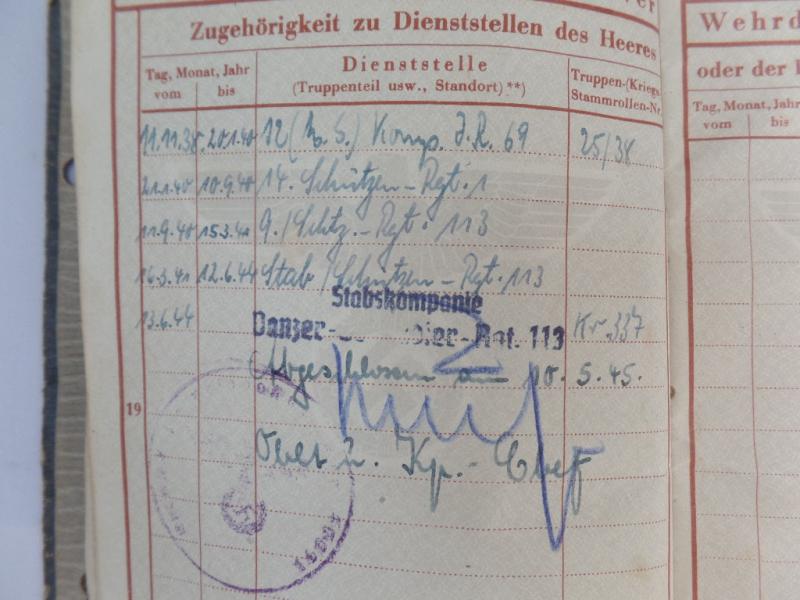 Zugehörigkeit zu Dienststellen des Heeres
Tag, Monat, Jahr
vom bis
Dienststelle
(Truppenteil usw., Standort)**)
Truppen-(Kriegs-
Stammrollen-Nr.
11.11.38. 20.1.40 12 (M.G.) Komp. J.R. 69 25/38
21.1.40 10.9.40 14. Schützen-Rgt. 1
11.9.40 15.3.41 9./Schtz.-Rgt. 113
16.3.41 12.6.44 Stab/Schützen-Rgt. 113
Stabskompanie
13.6.44 Panzer- -Rgt. 113 Kr. 337
Abgeschlossen am 10. 5. 45.
19
Oblt u. Kp.-Chef
Wehrd
oder der
Tag, Monat, Jahr
vom bis